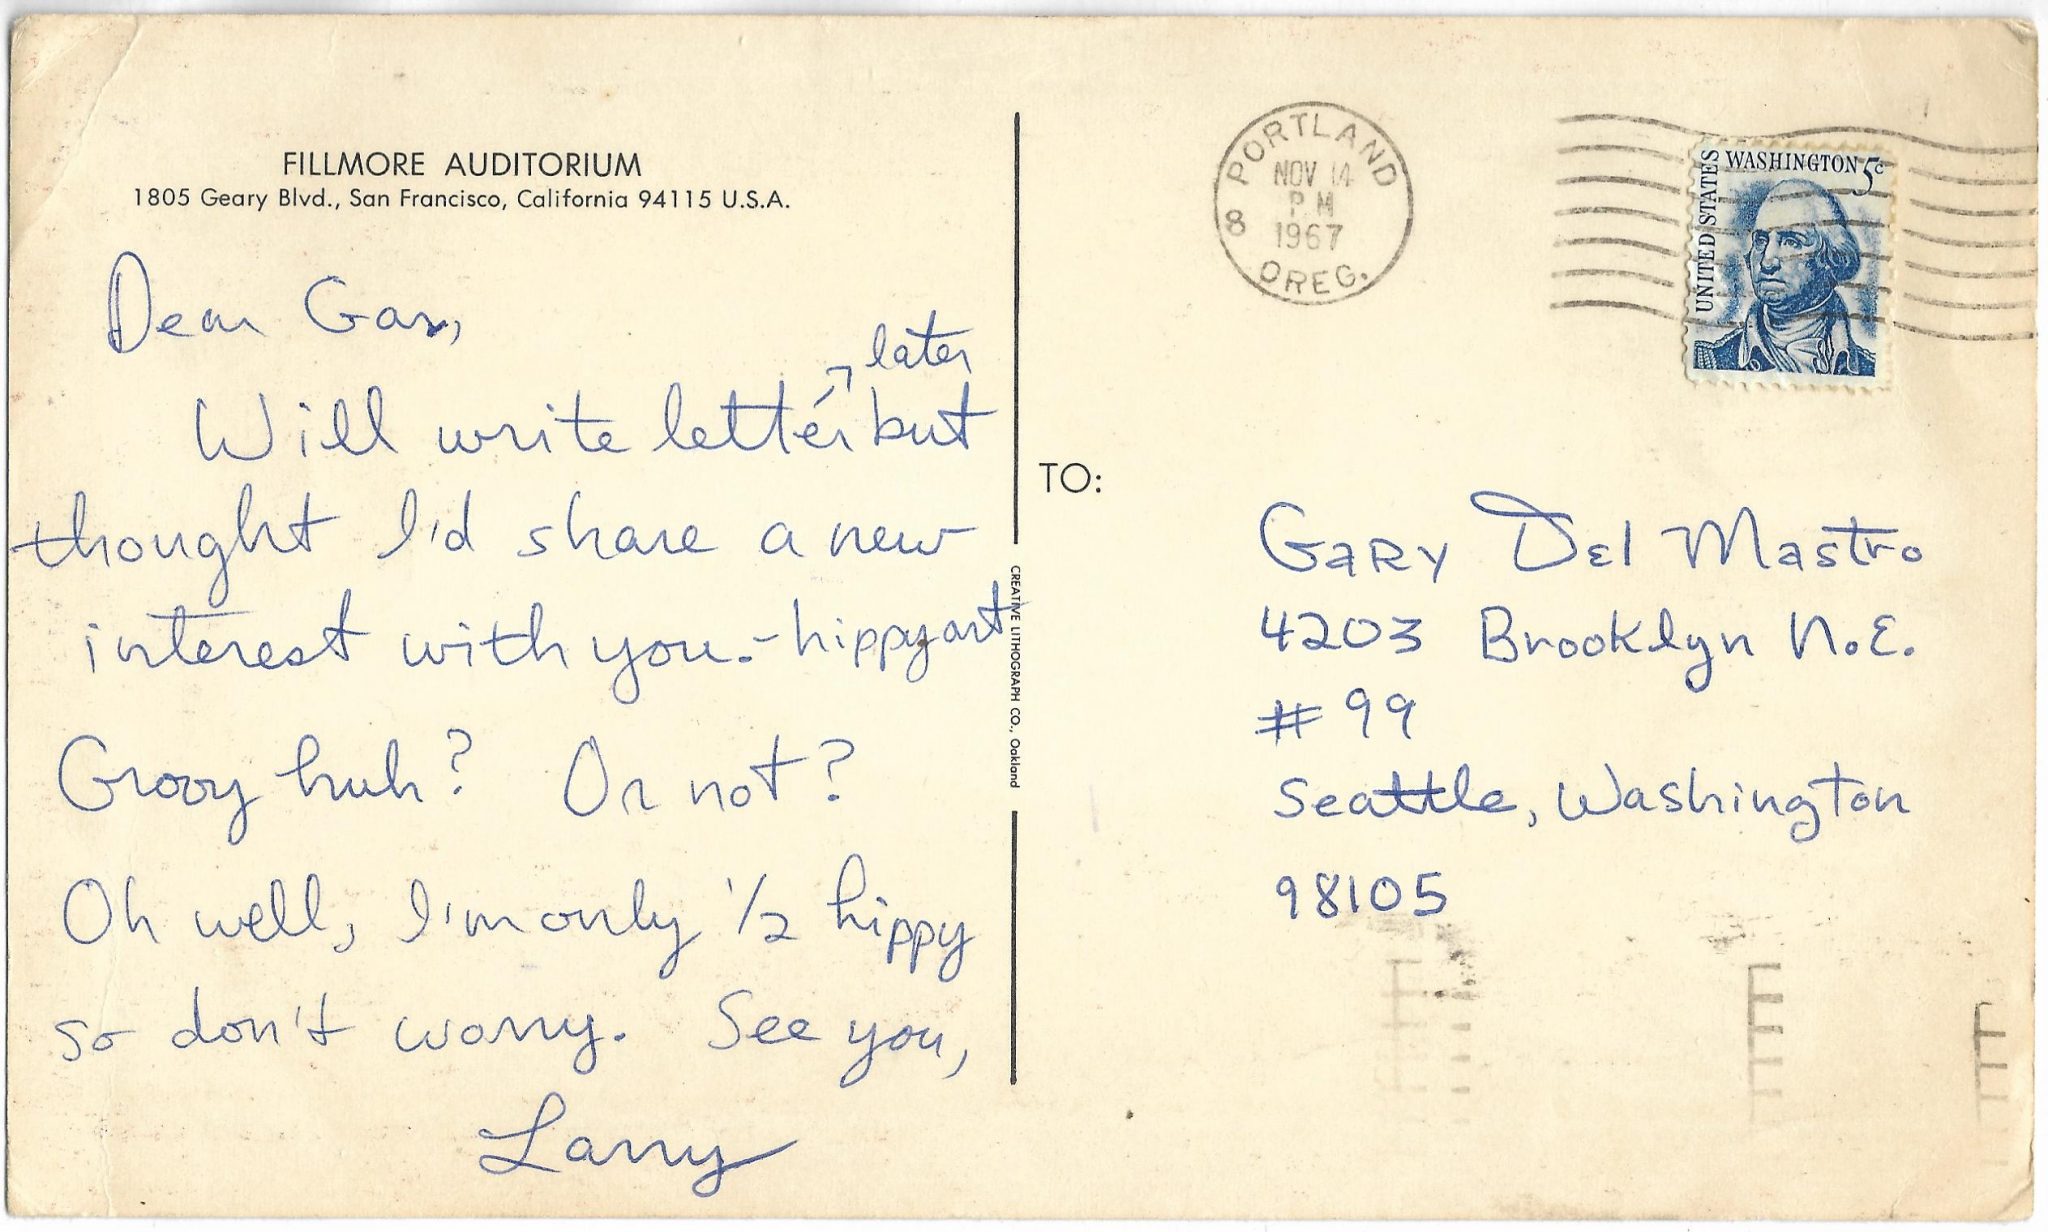 FILLMORE AUDITORIUM
1805 Geary Blvd., San Francisco, California 94115 U.S.A.
Dear Gar,
later
Will write letter but
thought I'd share a new
interest with you. - hippy art
Groovy huh? Or not?
Oh well, I'm only 1/2 hippy
so don't worry. See you,
Larry
CREATIVE LITHOGRAPH CO., Oakland
PORTLAND
NOV 14
PM
8 1967
OREG.
UNITED STATES
WASHINGTON 5c
TO:
GARY Del Mastro
4203 Brooklyn N.E.
# 99
Seattle, Washington
98105